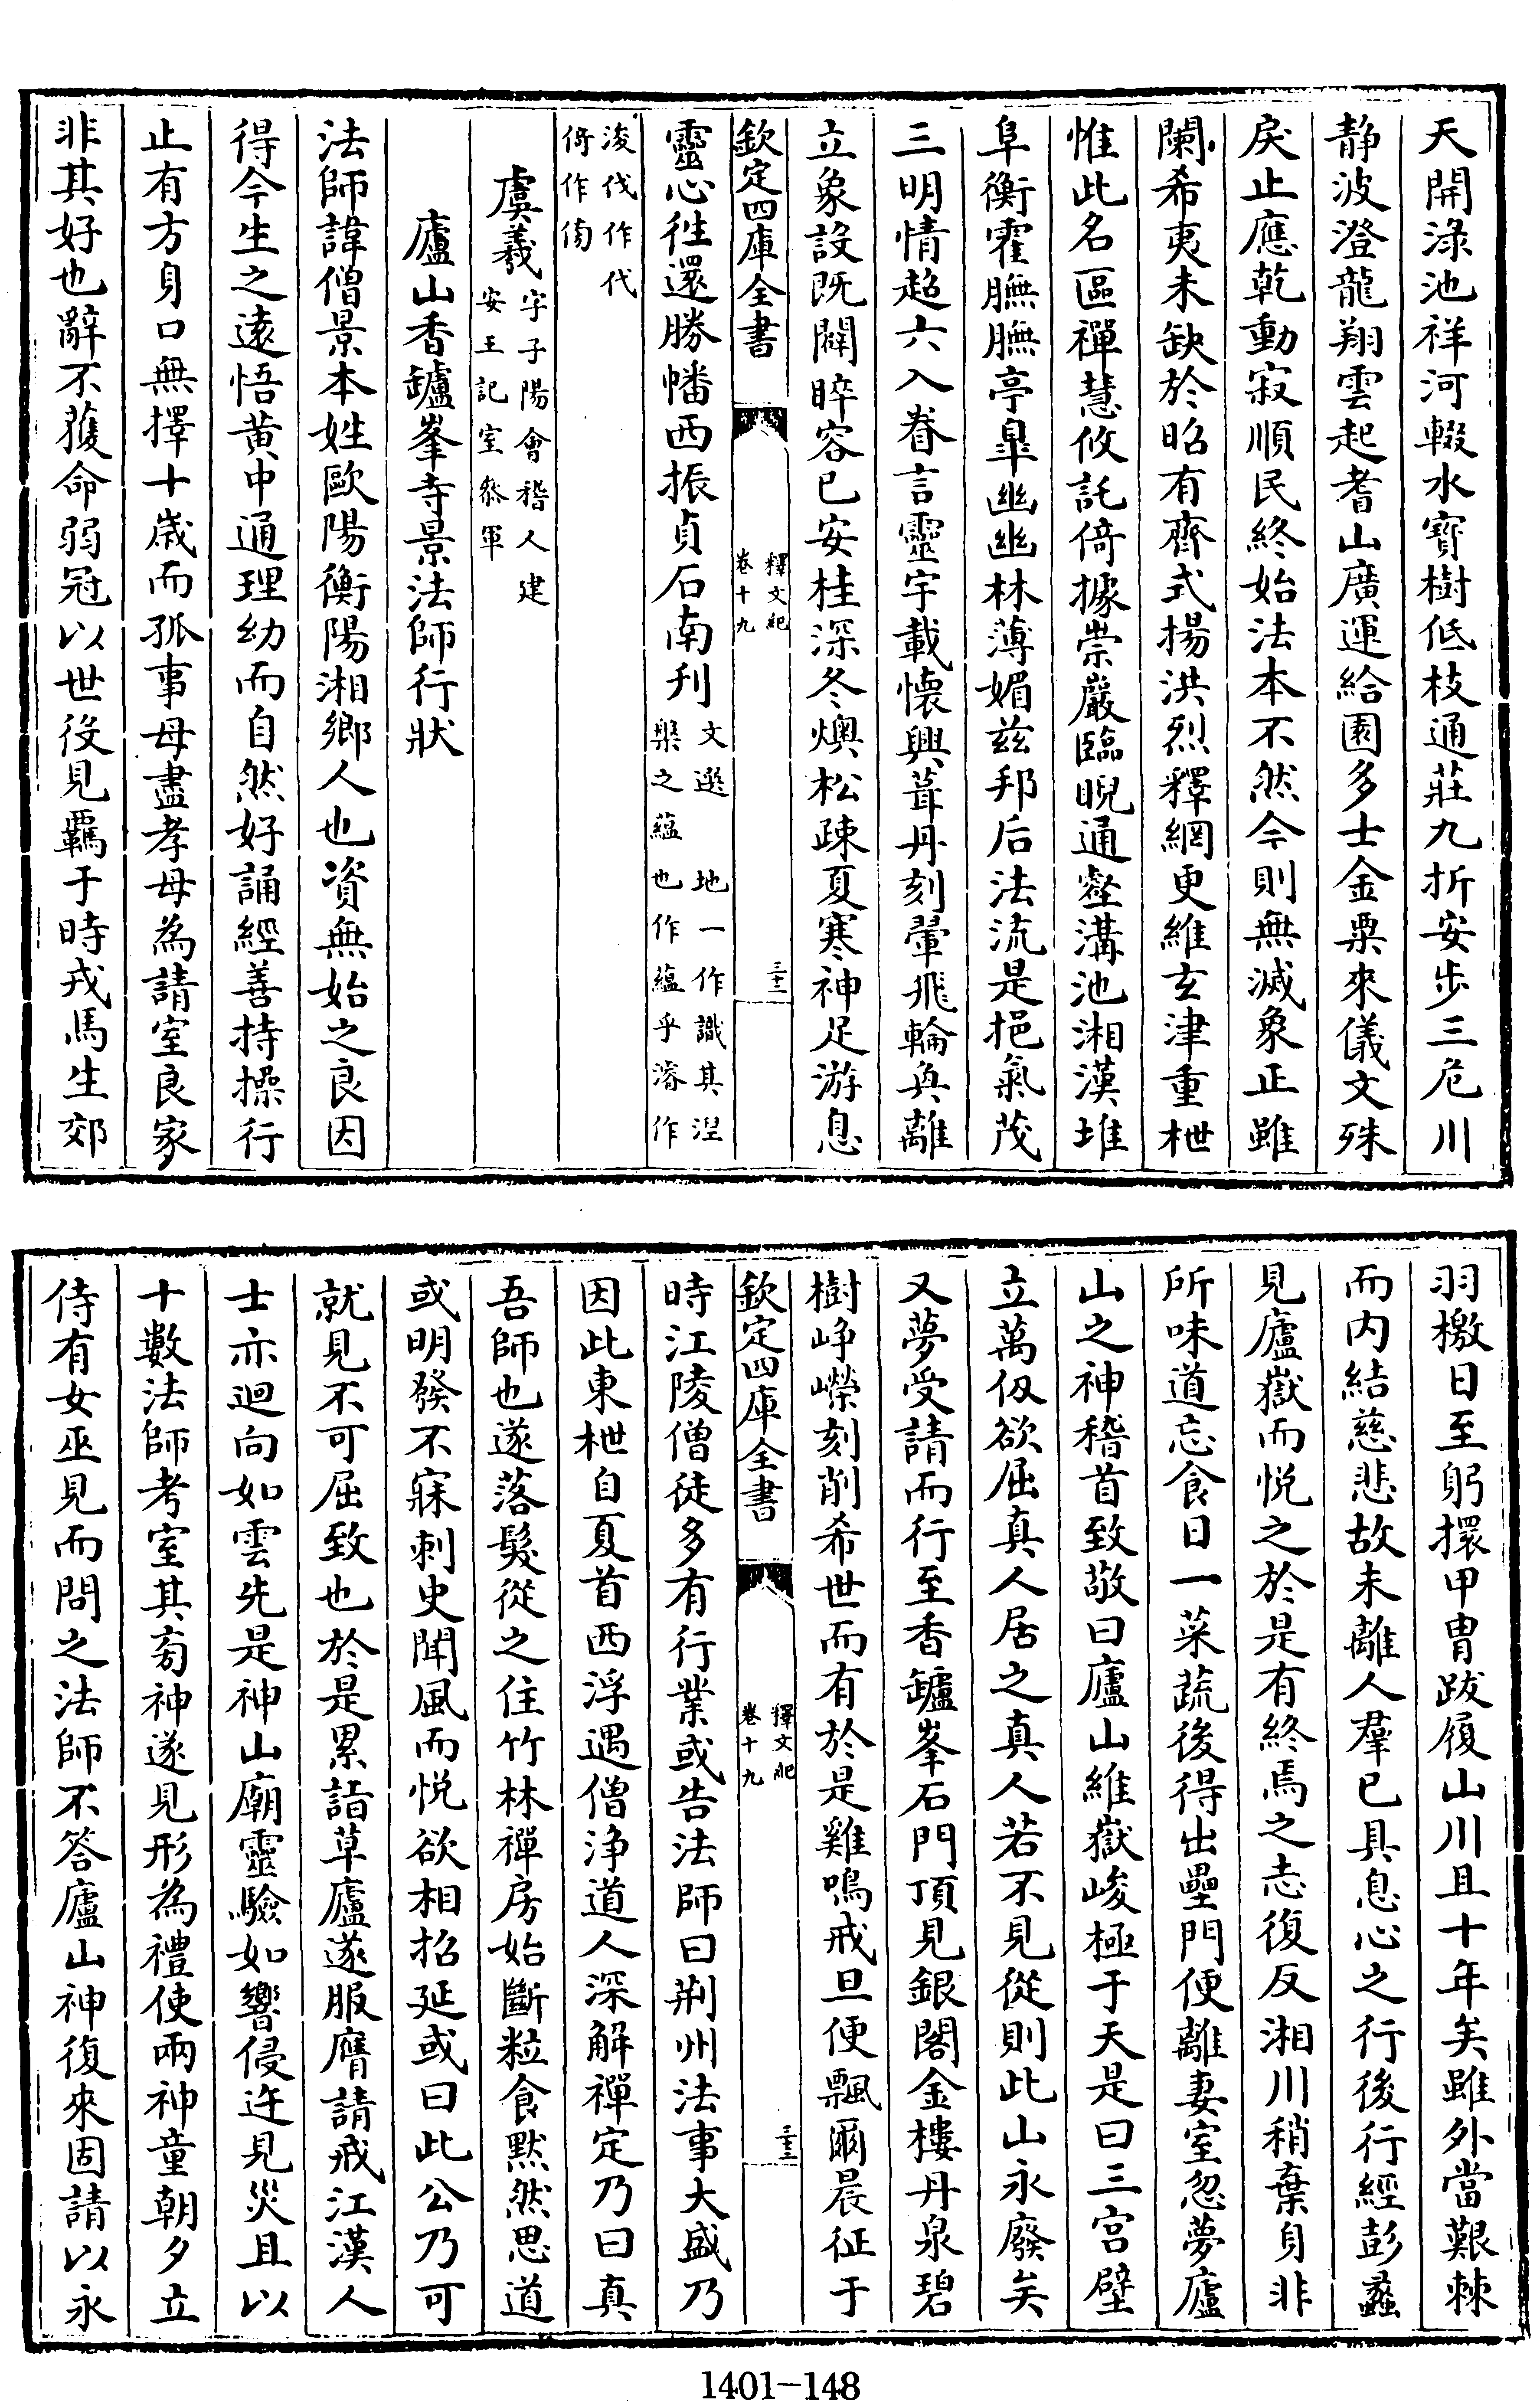 天開淥池祥河輟水寶樹低枝通莊九折安歩三危川
静波澄龍翔雲起耆山廣運給園多士金粟來儀文殊
戾止應乾動寂順民終始法本不然今則無滅象正雖
闌希夷未缺於昭有齊式揚洪烈釋網更維玄津重枻
惟此名區禪慧攸託倚據崇巖臨睨通壑溝池湘漢堆
阜衡霍膴膴亭臯幽幽林薄媚兹邦后法流是挹氣茂
三明情超六入眷言靈宇載懐興葺丹刻翬飛輪奐離
立象設既闢睟容已安桂深冬燠松疎夏寒神足游息
欽定四庫全書
釋文紀
卷十九
三十二
靈心徃還勝幡西振貞石南刋文選 地一作識其湼
槃之藴也作藴乎濬作
浚伐作代
倚作倚
虞羲字子陽會稽人建
安王記室叅軍
廬山香鑪峯寺景法師行狀
法師諱僧景本姓歐陽衡陽湘鄉人也資無始之良因
得今生之遠悟黄中通理幼而自然好誦經善持操行
止有方身口無擇十歳而孤事母盡孝母為請室良家
非其好也辭不獲命弱冠以世役見羈于時戎馬生郊
羽檄日至躬擐甲胄跋履山川且十年矣雖外當艱棘
而内結慈悲故未離人羣已具息心之行後行經彭蠡
見廬嶽而悦之於是有終焉之志復反湘川稍棄身非
所味道忘食日一菜蔬後得出壘門便離妻室忽夢廬
山之神稽首致敬曰廬山維嶽峻極于天是曰三宫壁
立萬仭欲屈真人居之真人若不見從則此山永廢矣
又夢受請而行至香鑪峯石門頂見銀閣金樓丹泉碧
樹崢嶸刻削希世而有於是雞鳴戒旦便飄爾晨征于
欽定四庫全書
釋文紀
卷十九
三十三
時江陵僧徒多有行業或告法師曰荆州法事大盛乃
因此東枻自夏首西浮遇僧浄道人深解禪定乃曰真
吾師也遂落髮從之住竹林禪房始斷粒食黙然思道
或明發不寐刺史聞風而悦欲相招延或曰此公乃可
就見不可屈致也於是累詣草廬遂服膺請戒江漢人
士亦迴向如雲先是神山廟靈驗如響侵迕見災且以
十數法師考室其旁神遂見形為禮使兩神童朝夕立
侍有女巫見而問之法師不答廬山神復來固請以永
1401-148